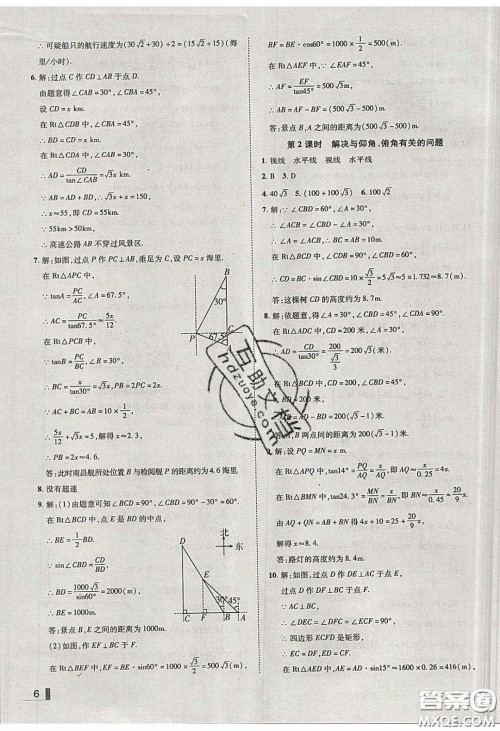 ∴ 可疑船只的航行速度为(30√2+30)÷2=(15√2+15)(海
里/小时).
6. 解:过点 C 作 CD⊥AB 于点 D.
由题意得∠CAB=30°,∠CBA=45°,
设 CD=x km.
在 Rt△CDB 中,∠CBA=45°,
∴ BD=CD=x km.
在 Rt△ACD 中,∠CAB=30°,
∴ AD=CD/tan∠CAB=√3x km.
∵ AD+BD=AB=150 km,∴ √3x+x=150,
∴ x≈55,即 CD≈55km.
55km>50km,
∴ 高速公路 AB 不穿过风景区.
7. 解:如图,过点 P 作 PC⊥AB,垂足为 C,设 PC=x 海里.
在 Rt△APC 中,
∵ tanA=PC/AC,∠A=67.5°,
∴ AC=PC/tan67.5°≈5x/12.
在 Rt△PCB 中,
∵ tanB=PC/BC,∠B=30°,
∴ BC=x/tan30°=√3x.
∵ AC+BC=AB=10×1/2,
∴ 5x/12+√3x=5,解得 x≈2.3.
∴ PB=2x≈4.6.
答:此时南昌舰所处位置 B 与检阅舰 P 的距离约为 4.6 海里.
B
30°
P
67.5°
C
A
8. 没有超速
9. 解:(1)由题意可知∠BCD=90°,∠CBD=90°-30°=60°.
在 Rt△BCD 中,点 E 是 BD 的中点,
∴ BE=1/2BD.
∵ sin∠CBD=CD/BD,
∴ BD=1000√3/sin60°=2000(m),
∴ BE=1000m.
答:景点 B,E 之间的距离为 1000m.
(2)如图,作 EF⊥BC 于 F.
在 Rt△EFB 中,∵ ∠EBF=60°,BE=1000m,
北
东
D
E
30°
45°
C
F
B
A
6
BF=BE·cos60°=1000×1/2=500(m).
在 Rt△AEF 中,∠EAF=45°,
∴ AF=EF/tan45°=500√3(m),
∴ AB=AF-BF=500(√3-1)(m).
答:景点 A,B 之间的距离为 500(√3-1)m.
第 2 课时 解决与仰角、俯角有关的问题
1. 视线 水平线 视线 水平线
2. B 3. D
4. 40√3 5. (100+100√3) 6. 100√2
7. 解:∵ ∠CBD=60°,∠A=30°,
∴ ∠BCA=∠CBD-∠A=30°.
∴ ∠BCA=∠A,∴ BC=AB=10m.
在 Rt△BCD 中,∠CBD=60°,
∴ CD=BC·sin∠CBD=10×√3/2=5√3≈5×1.732≈8.7(m).
答:这棵树 CD 的高度约为 8.7m.
8. 解:依题意,得∠A=30°,∠CBD=45°.
∴ AD=CD/tan30°=200/(√3/3)=200√3(米).
在 Rt△BCD 中,∠CBD=45°,
BD=200 米,
-BD=200(√3-1)米.
两点间的距离为 200(√3-1)米.
9. 解:设 MN=PQ=x m.
在 Rt△APQ 中,tan14°=PQ/AQ=x/AQ≈0.25,即 AQ≈4x.
在 Rt△BMN 中,tan24.3°=MN/BN=x/BN≈0.45,
由 AQ+QN=AB+BN
解得 x≈8.4.
答:路灯的高度约为 8.4m.
10. 解:如图,过点 D 作 DE⊥AC 于点 E.
∵ AC⊥BC,
∴ ∠DFC=90°,∠DEC=∠ECF=90°,
∴ 四边形 ECFD 是矩形,
在 Rt△AED 中,AE=AD·sin15°≈1600×0.26=416(m).
互助文档
hdzuoye.com
答案圈
MXQE.COM